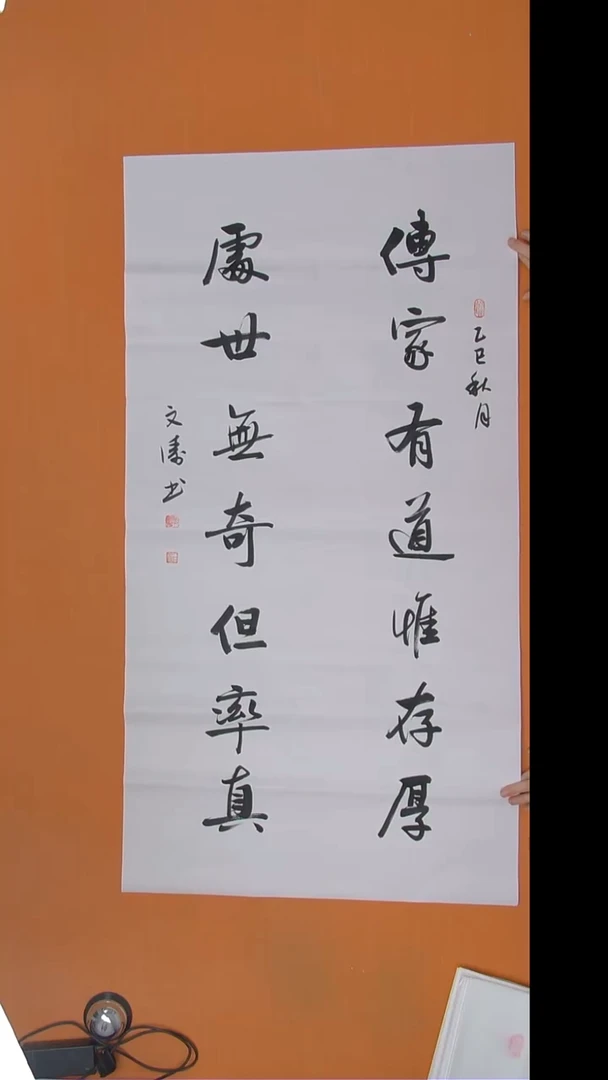 乙巳秋月
傳家有道惟存厚
處世無奇但率真
文濤书